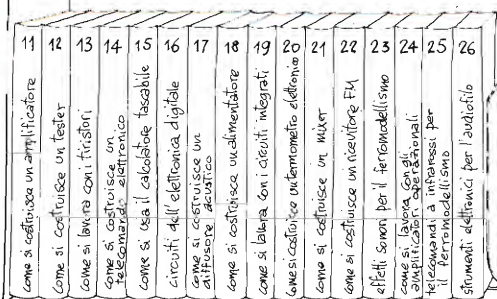 11
come si costruisce un amplificatore
12
come si costruisce un tester
13
come si lavora con i tiristori
14
come si costruisce un
telecomando elettronico
15
come si usa il calcolatore tascabile
16
circuiti dell'elettronica digitale
17
come si costruisce un
diffusore acustico
18
come si costruisce un alimentatore
19
come si lavora con i circuiti integrati
20
come si costruisce un termometro elettronico
21
come si costruisce un mixer
22
come si costruisce un ricevitore FM
23
effetti sonori per il ferromodellismo
24
come si lavora con gli
amplificatori operazionali
25
telecomandi a infrarossi per
il ferromodellismo
26
strumenti elettronici per l'audiofilo